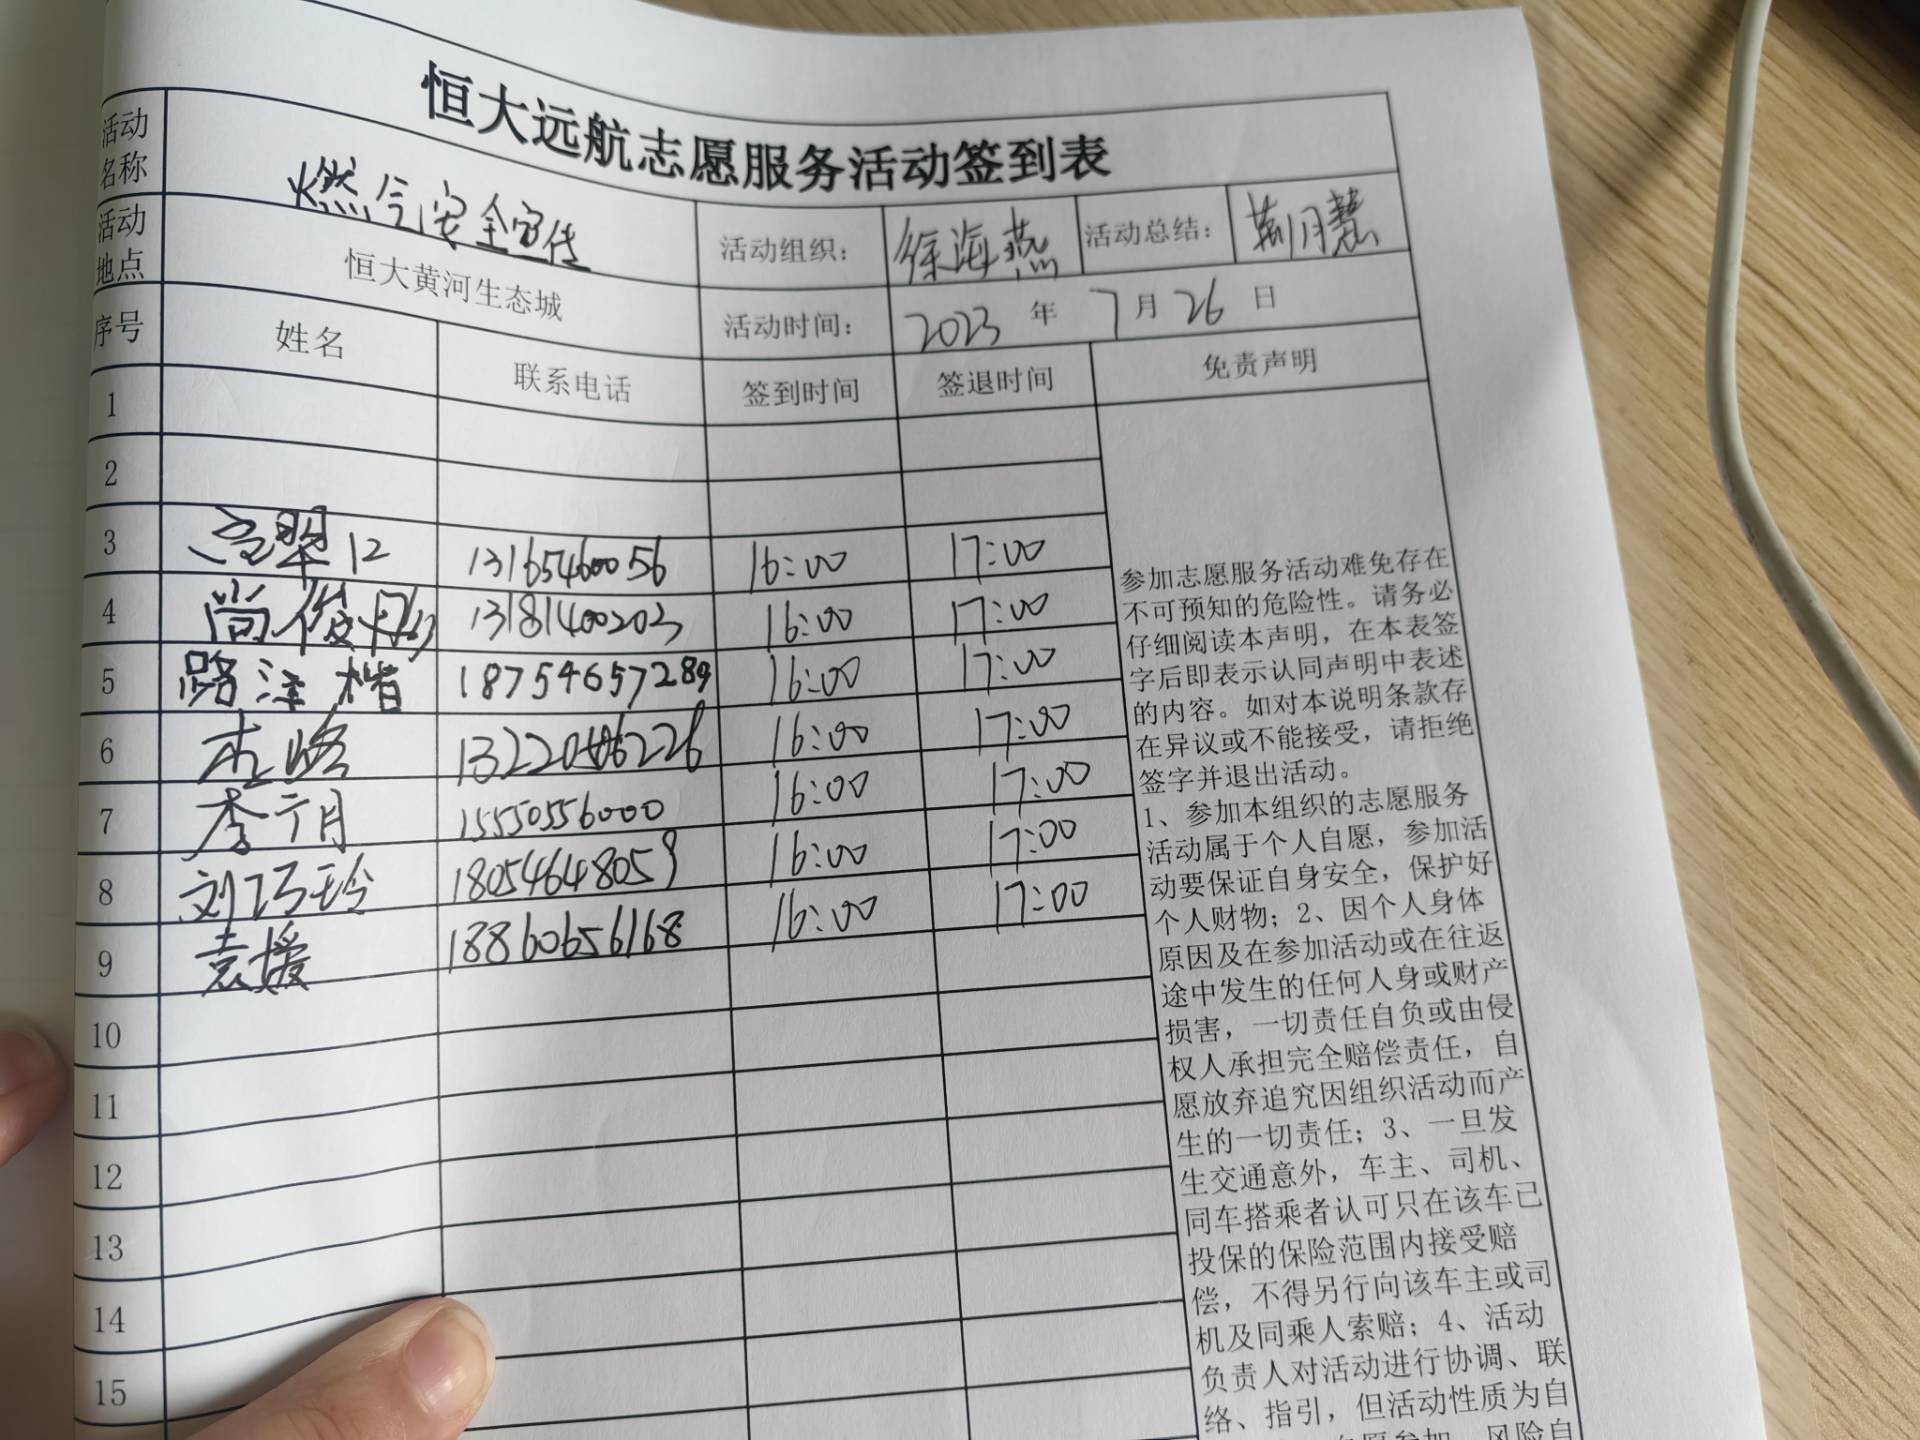 恒大远航志愿服务活动签到表
活动名称 燃气安全宣传 活动组织： 徐海燕 活动总结： 荆月慧
活动地点 恒大黄河生态城 活动时间： 2023 年 7 月 26 日
序号 姓名 联系电话 签到时间 签退时间 免责声明
1
2
3 13165460056 16:00 17:00
4 尚俊 13181400203 16:00 17:00
5 路 楷 18754657289 16:00 17:00
6 16:00 17:00
7 李 月 15550556000 16:00 17:00
8 刘巧玲 18054648059 16:00 17:00
9 袁媛 18860656168 16:00 17:00
10
11
12
13
14
15
参加志愿服务活动难免存在
不可预知的危险性。请务必
仔细阅读本声明，在本表签
字后即表示认同声明中表述
的内容。如对本说明条款存
在异议或不能接受，请拒绝
签字并退出活动。
1、参加本组织的志愿服务
活动属于个人自愿，参加活
动要保证自身安全，保护好
个人财物；2、因个人身体
原因及在参加活动或在往返
途中发生的任何人身或财产
损害，一切责任自负或由侵
权人承担完全赔偿责任，自
愿放弃追究因组织活动而产
生的一切责任；3、一旦发
生交通意外，车主、司机、
同车搭乘者认可只在该车已
投保的保险范围内接受赔
偿，不得另行向该车主或司
机及同乘人索赔；4、活动
负责人对活动进行协调、联
络、指引，但活动性质为自
愿参加，风险自